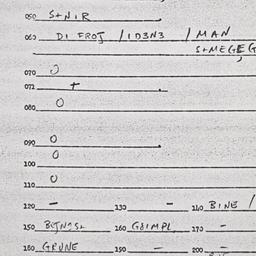 050 S+NIR
060 DI FROJ / ID3N3 / MAN
S+MEGEG
070 O
072 +
080 O
090 O
100 O
110 O
120 - 130 - 140 BINE /
150 160 GOIMPL 170 -
180 GRUNE 190 - 200 -